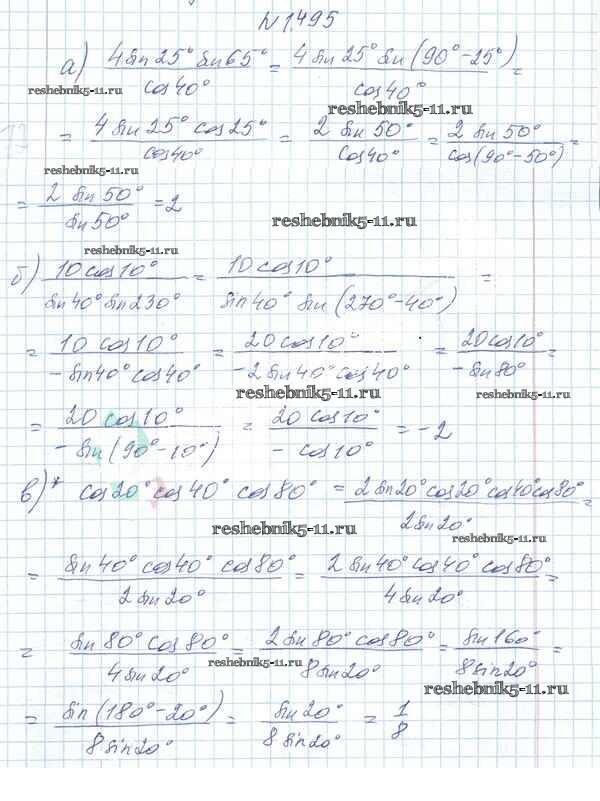 N 1.495
а) 4 sin 25° sin 65° / cos 40° = 4 sin 25° sin (90° - 25°) / cos 40° =
reshebnik5-11.ru
reshebnik5-11.ru
= 4 sin 25° cos 25° / cos 40° = 2 sin 50° / cos 40° = 2 sin 50° / cos (90° - 50°) =
reshebnik5-11.ru
= 2 sin 50° / sin 50° = 2
reshebnik5-11.ru
reshebnik5-11.ru
б) 10 cos 10° / sin 40° sin 230° = 10 cos 10° / sin 40° sin (270° - 40°) =
= 10 cos 10° / - sin 40° cos 40° = 20 cos 10° / -2 sin 40° cos 40° = 20 cos 10° / - sin 80° =
reshebnik5-11.ru
reshebnik5-11.ru
= 20 cos 10° / - sin (90° - 10°) = 20 cos 10° / - cos 10° = -2
в)* cos 20° cos 40° cos 80° = 2 sin 20° cos 20° cos 40° cos 80° / 2 sin 20° =
reshebnik5-11.ru
reshebnik5-11.ru
= sin 40° cos 40° cos 80° / 2 sin 20° = 2 sin 40° cos 40° cos 80° / 4 sin 20° =
= sin 80° cos 80° / 4 sin 20° = 2 sin 80° cos 80° / 8 sin 20° = sin 160° / 8 sin 20° =
reshebnik5-11.ru
reshebnik5-11.ru
= sin (180° - 20°) / 8 sin 20° = sin 20° / 8 sin 20° = 1/8